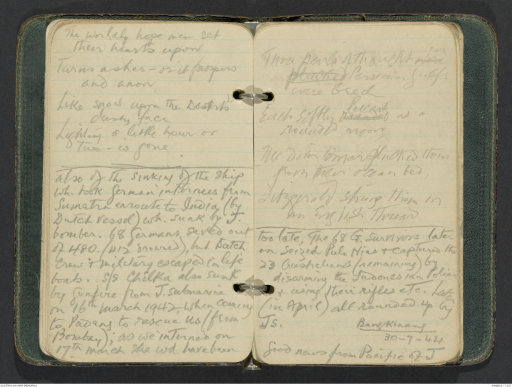 The worldly hope men set
their hearts upon
Turns ashes - or it prospers
and anon
Like snow upon the Desert's
dusty face
Lighting a little hour or
two - is gone.
also of the sinking of the ship
wh. took German internees from
Sumatra enroute to India (by
Dutch vessel) wh. sunk by J.
bomber. 68 Germans saved out
of 480. (412 drowned) but Dutch
crew & military escaped in life
boats. S/S Chilka also sunk
by gunfire from J. submarine
on 16th March 1942, when coming
to Padang to rescue us (from
Bombay); as we interned on
17th March she wd have been
Three pearls of thought
plucked Persian Gulfs
were bred
Each softly as a
rounded moon
The Diver Omar plucked them
from their ocean bed
Fitzgerald strung them on
an English thread
too late. The 68 G. survivors later
on seized Pulo Nias & captured the
23 (remaining) by
disarming the Javanese Police
& using their rifles etc. Later
(in April) all rounded up by
Js.
Bangkinang
30-7-42
Good news from Pacific of J